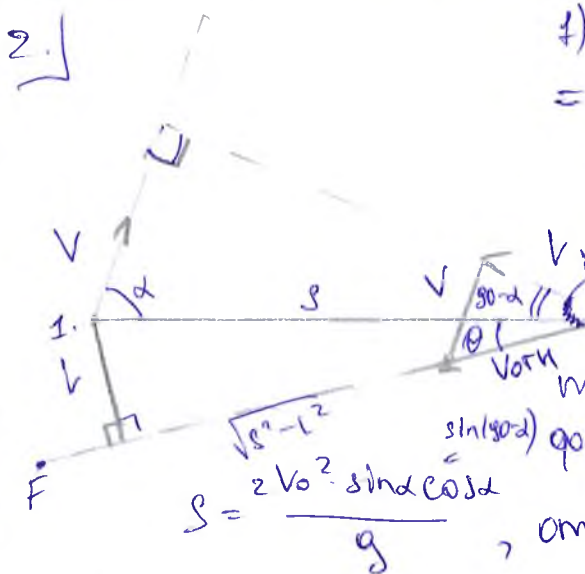 2.
1)
=
V
α
S
V
90-α
V
1.
L
θ
Vотн
√S²-L²
sin(90-α)
F
S = 2V₀² · sinα cosα / g
, от